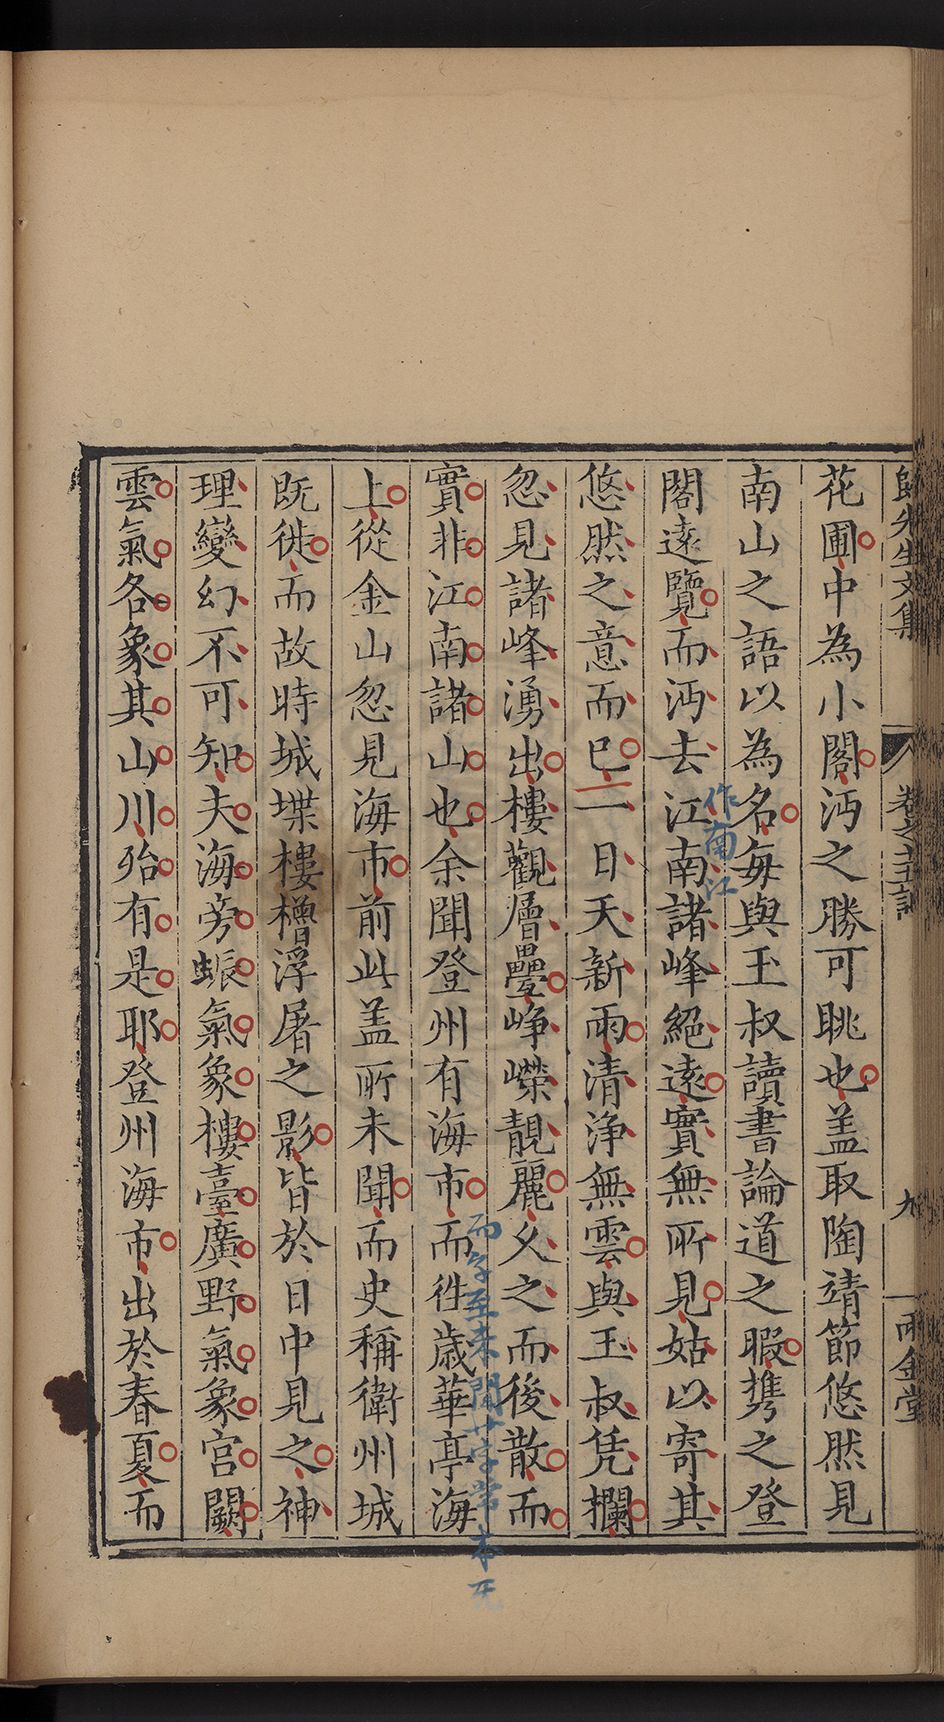 歸先生文集
卷之十五記
九
雨金堂
花圃中為小閣沔之勝可眺也盖取陶靖節悠然見
南山之語以為名每與玉叔讀書論道之暇携之登
閣遠覽而沔去江南諸峰絕遠實無所見姑以寄其
作南江
悠然之意而已一日天新雨清浄無雲與玉叔凭欄
忽見諸峰湧出樓觀層疊峥嶸靚麗乆之而後散而
實非江南諸山也余聞登州有海市而徃歲華亭海
而字至未聞廿字常本无
上從金山忽見海市前此盖所未聞而史稱衛州城
既徙而故時城堞樓櫓浮屠之影皆於日中見之神
理變幻不可知夫海旁蜄氣象樓臺廣野氣象宫闕
雲氣各象其山川殆有是耶登州海市出於春夏而